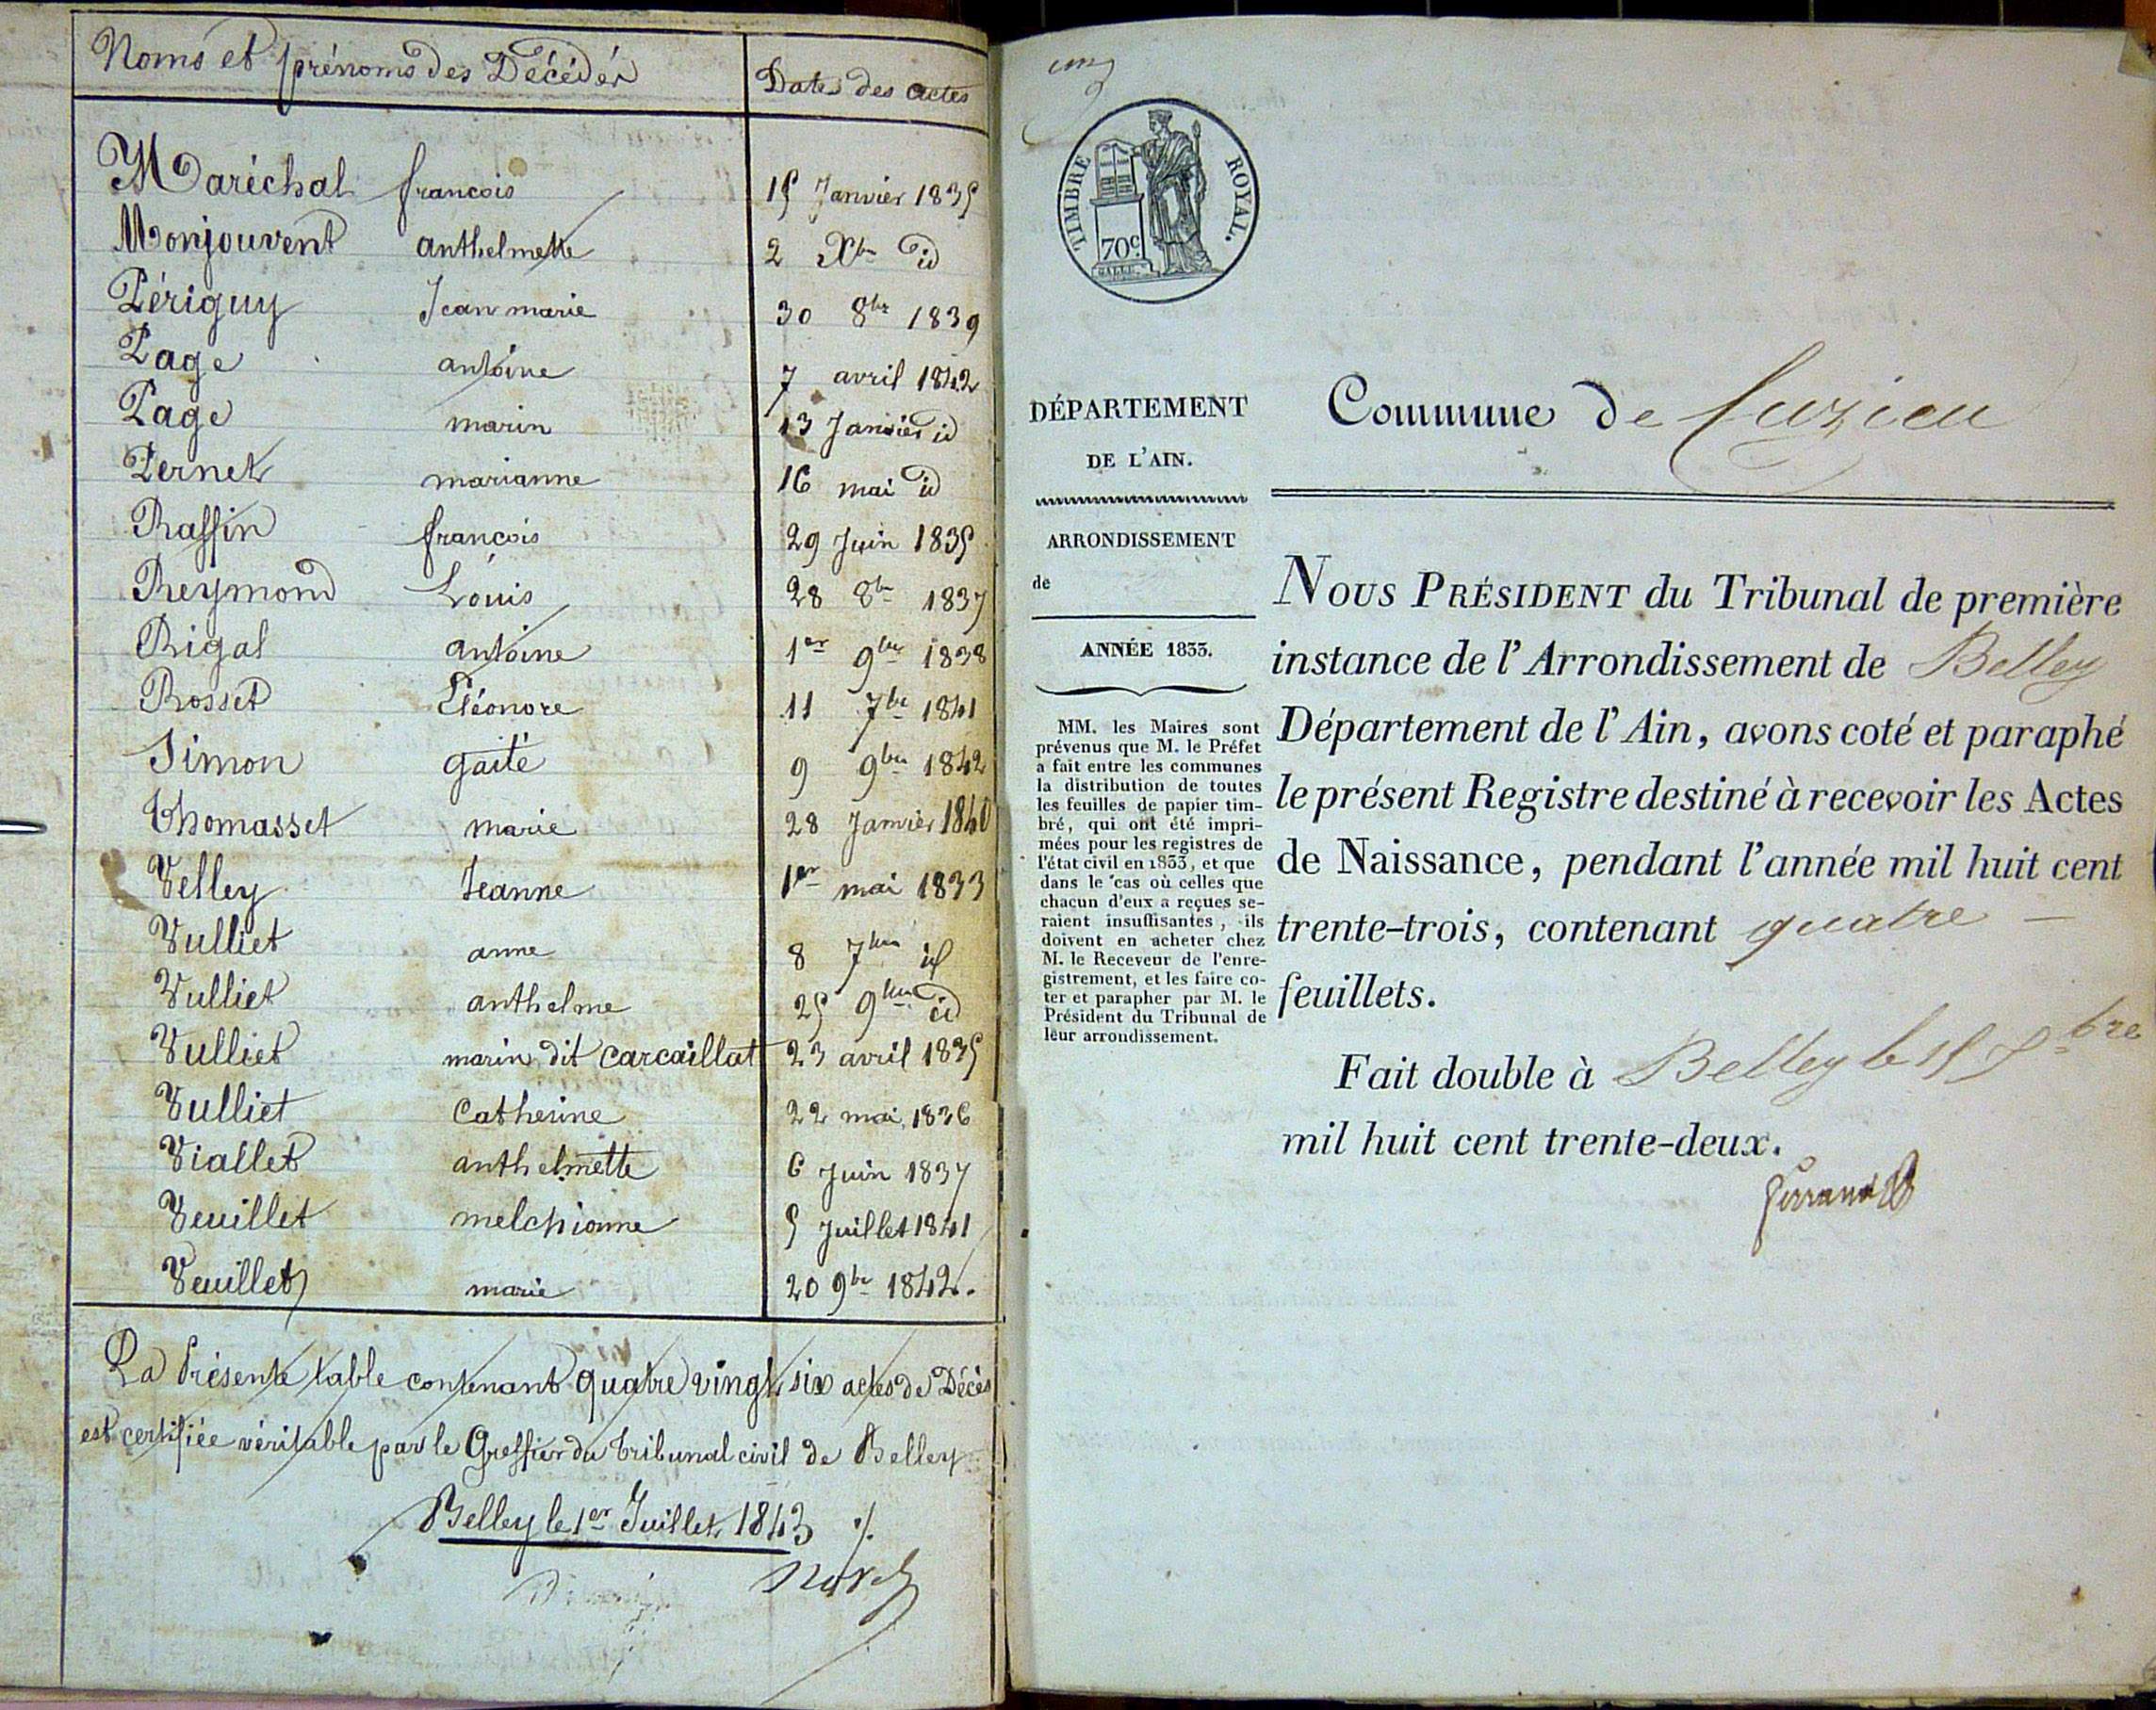 Noms et prénoms des Décédés
Dates des actes
Maréchal francois 15 Janvier 1835
Monjouvent anthelmette 2 Xbre id
Périguy Jean marie 30 8bre 1839
Page antoine 7 avril 1842
Page marin 13 Janvier id
Pernet marianne 16 mai id
Raffin françois 29 Juin 1835
Reymond Louis 28 8bre 1837
Rigal antoine 1er 9bre 1838
Rosset Eléonore 11 7bre 1841
Simon gaité 9 9bre 1842
Thomasset marie 28 Janvier 1840
Velley Jeanne 1er mai 1833
Vulliet anne 8 7bre id
Vulliet anthelme 25 9bre id
Vulliet marin dit Carcaillat 23 avril 1835
Vulliet Catherine 22 mai 1836
Viallet anthelmette 6 Juin 1837
Veuillet melchionne 5 Juillet 1841
Veuillet marie 20 9bre 1842.
La Présente table contenant quatre vingt six actes de Décès
est certifiée véritable par le Greffier du tribunal civil de Belley
Belley le 1er Juillet 1843
TIMBRE ROYAL.
70c
GALLE.
DÉPARTEMENT
DE L'AIN.
ARRONDISSEMENT
de
ANNÉE 1833.
MM. les Maires sont
prévenus que M. le Préfet
a fait entre les communes
la distribution de toutes
les feuilles de papier tim-
bré, qui ont été impri-
mées pour les registres de
l'état civil en 1833, et que
dans le cas où celles que
chacun d'eux a reçues se-
raient insuffisantes, ils
doivent en acheter chez
M. le Receveur de l'enre-
gistrement, et les faire co-
ter et parapher par M. le
Président du Tribunal de
leur arrondissement.
Commune de Cuzieu
NOUS PRÉSIDENT du Tribunal de première
instance de l'Arrondissement de Belley
Département de l'Ain, avons coté et paraphé
le présent Registre destiné à recevoir les Actes
de Naissance, pendant l'année mil huit cent
trente-trois, contenant quatre
feuillets.
Fait double à Belley le 15 Xbre
mil huit cent trente-deux.